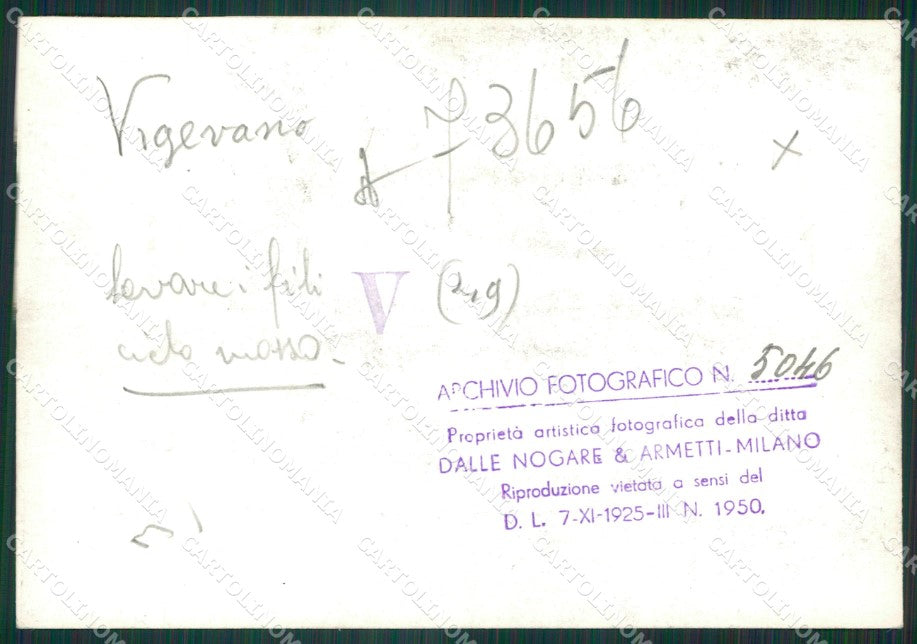 Vigevano
73656
x
levare i fili
cielo mosso -
V
(219)
ARCHIVIO FOTOGRAFICO N. 5046
Proprietà artistica fotografica della ditta
DALLE NOGARE & ARMETTI - MILANO
Riproduzione vietata a sensi del
D. L. 7-XI-1925-III N. 1950.
CARTOLINOMANIA